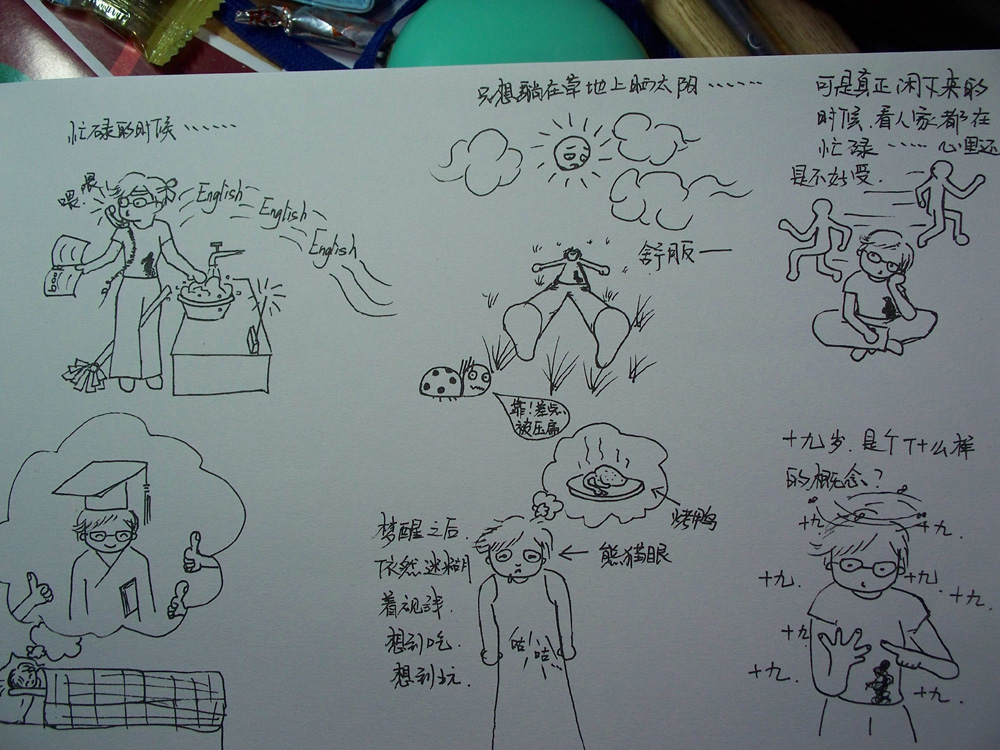 忙碌的时候……
喂
喂
English
English
English
只想躺在草地上晒太阳……
舒服—
靠！差点
被压扁
可是真正闲下来的
时候，看人家都在
忙碌……心里还
是不好受.
梦醒之后.
依然迷糊
着视线.
想到吃.
想到玩.
烤鸭
熊猫眼
咕!
咕!
十九岁.是个什么样
的概念?
十九
十九.
十九.
十九.
十九.
十九
十九.
十九.